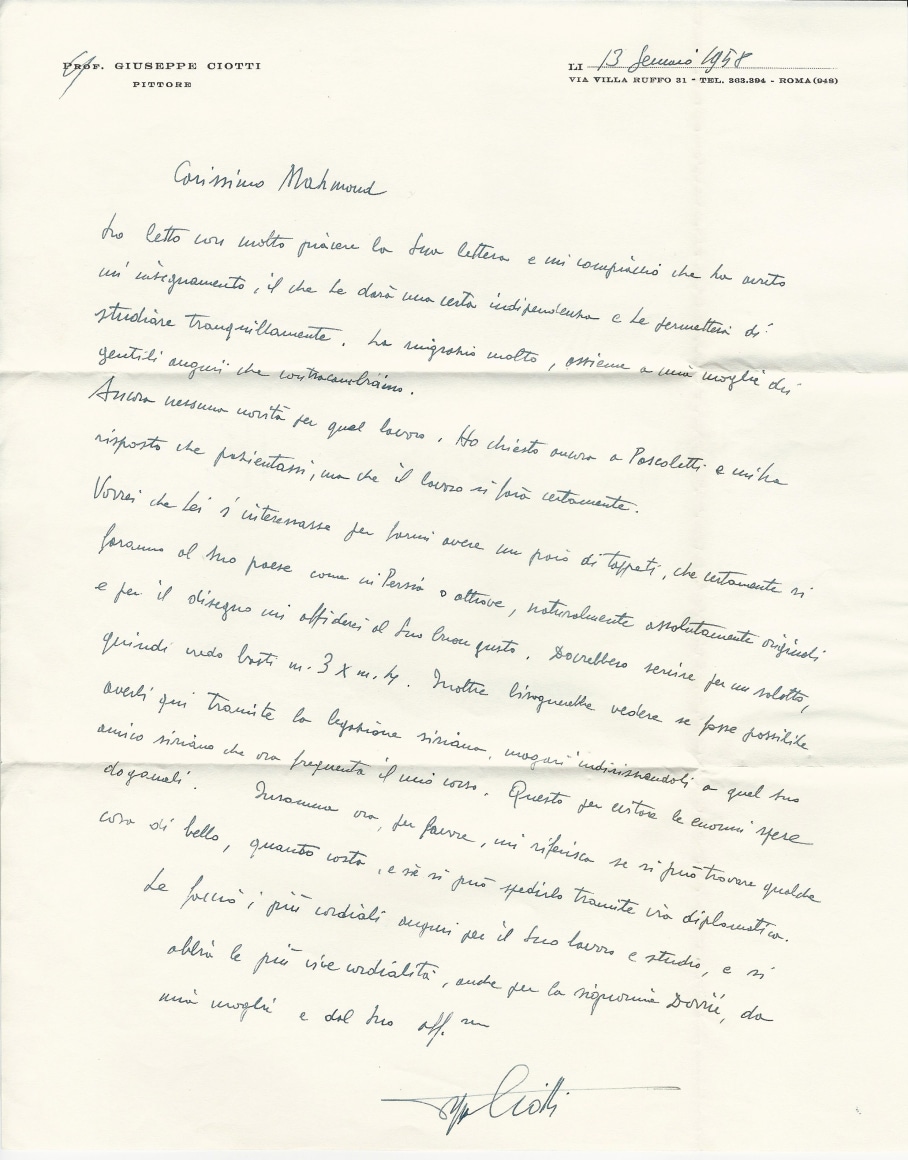 PROF. GIUSEPPE CIOTTI
PITTORE
LI 13 Gennaio 1958
VIA VILLA RUFFO 31 - TEL. 363.394 - ROMA (948)
Carissimo Mahmoud
ho letto con molto piacere la Sua lettera e mi compiaccio che ha avuto
un insegnamento, il che Le darà una certa indipendenza e Le permetterà di
studiare tranquillamente. La ringrazio molto, assieme a mia moglie dei
gentili auguri che contraccambiamo.
Ancora nessuna novità per quel lavoro. Ho chiesto ancora a Pascoletti e mi ha
risposto che pazientassi, ma che il lavoro si farà certamente.
Vorrei che Lei s'interessasse per farmi avere un paio di tappeti, che certamente si
faranno al Suo paese come in Persia o altrove, naturalmente assolutamente originali
e per il disegno mi affiderei al Suo buon gusto. Dovrebbero servire per un salotto,
quindi credo basti m. 3 x m. 4. Inoltre bisognerebbe vedere se fosse possibile
averli qui tramite la legazione siriana, magari indirizzandoli a quel Suo
amico siriano che ora frequenta il mio corso. Questo per evitare le enormi spese
doganali. Insomma ora, per favore, mi riferisca se si può trovare qualche
cosa di bello, quanto costa, e se si può spedirlo tramite via diplomatica.
Le faccio i più cordiali auguri per il Suo lavoro e studio, e si
abbia le più vive cordialità, anche per la signorina, da
mia moglie e dal Suo aff.mo
Ciotti